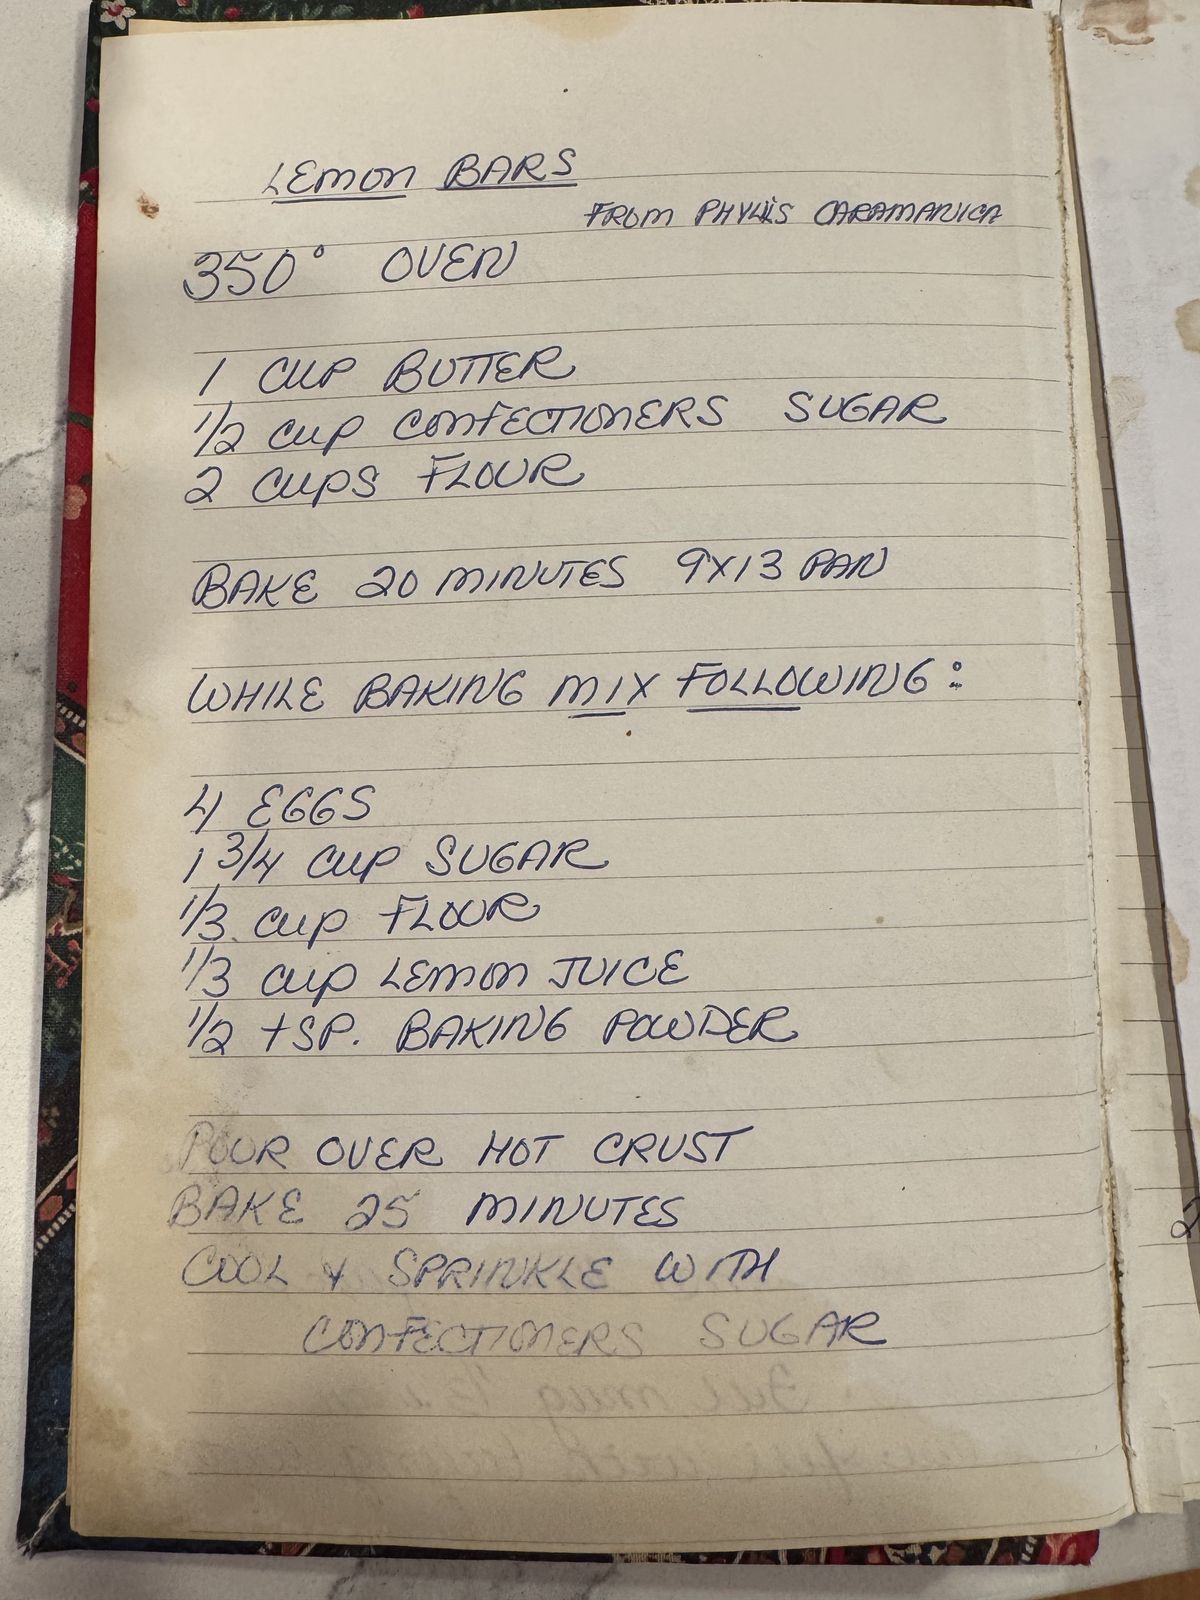 LEMON BARS
FROM PHYLLIS CARAMANICA
350° OVEN
1 CUP BUTTER
1/2 CUP CONFECTIONERS SUGAR
2 CUPS FLOUR
BAKE 20 MINUTES 9X13 PAN
WHILE BAKING MIX FOLLOWING:
4 EGGS
1 3/4 CUP SUGAR
1/3 CUP FLOUR
1/3 CUP LEMON JUICE
1/2 tSP. BAKING POWDER
POUR OVER HOT CRUST
BAKE 25 MINUTES
COOL & SPRINKLE WITH
CONFECTIONERS SUGAR